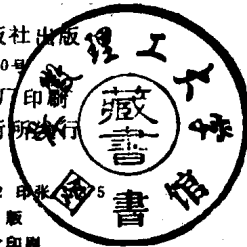 版社出版
0号
厂印刷
行
2 印张 5
版
印刷
理工大学
藏書
图書馆